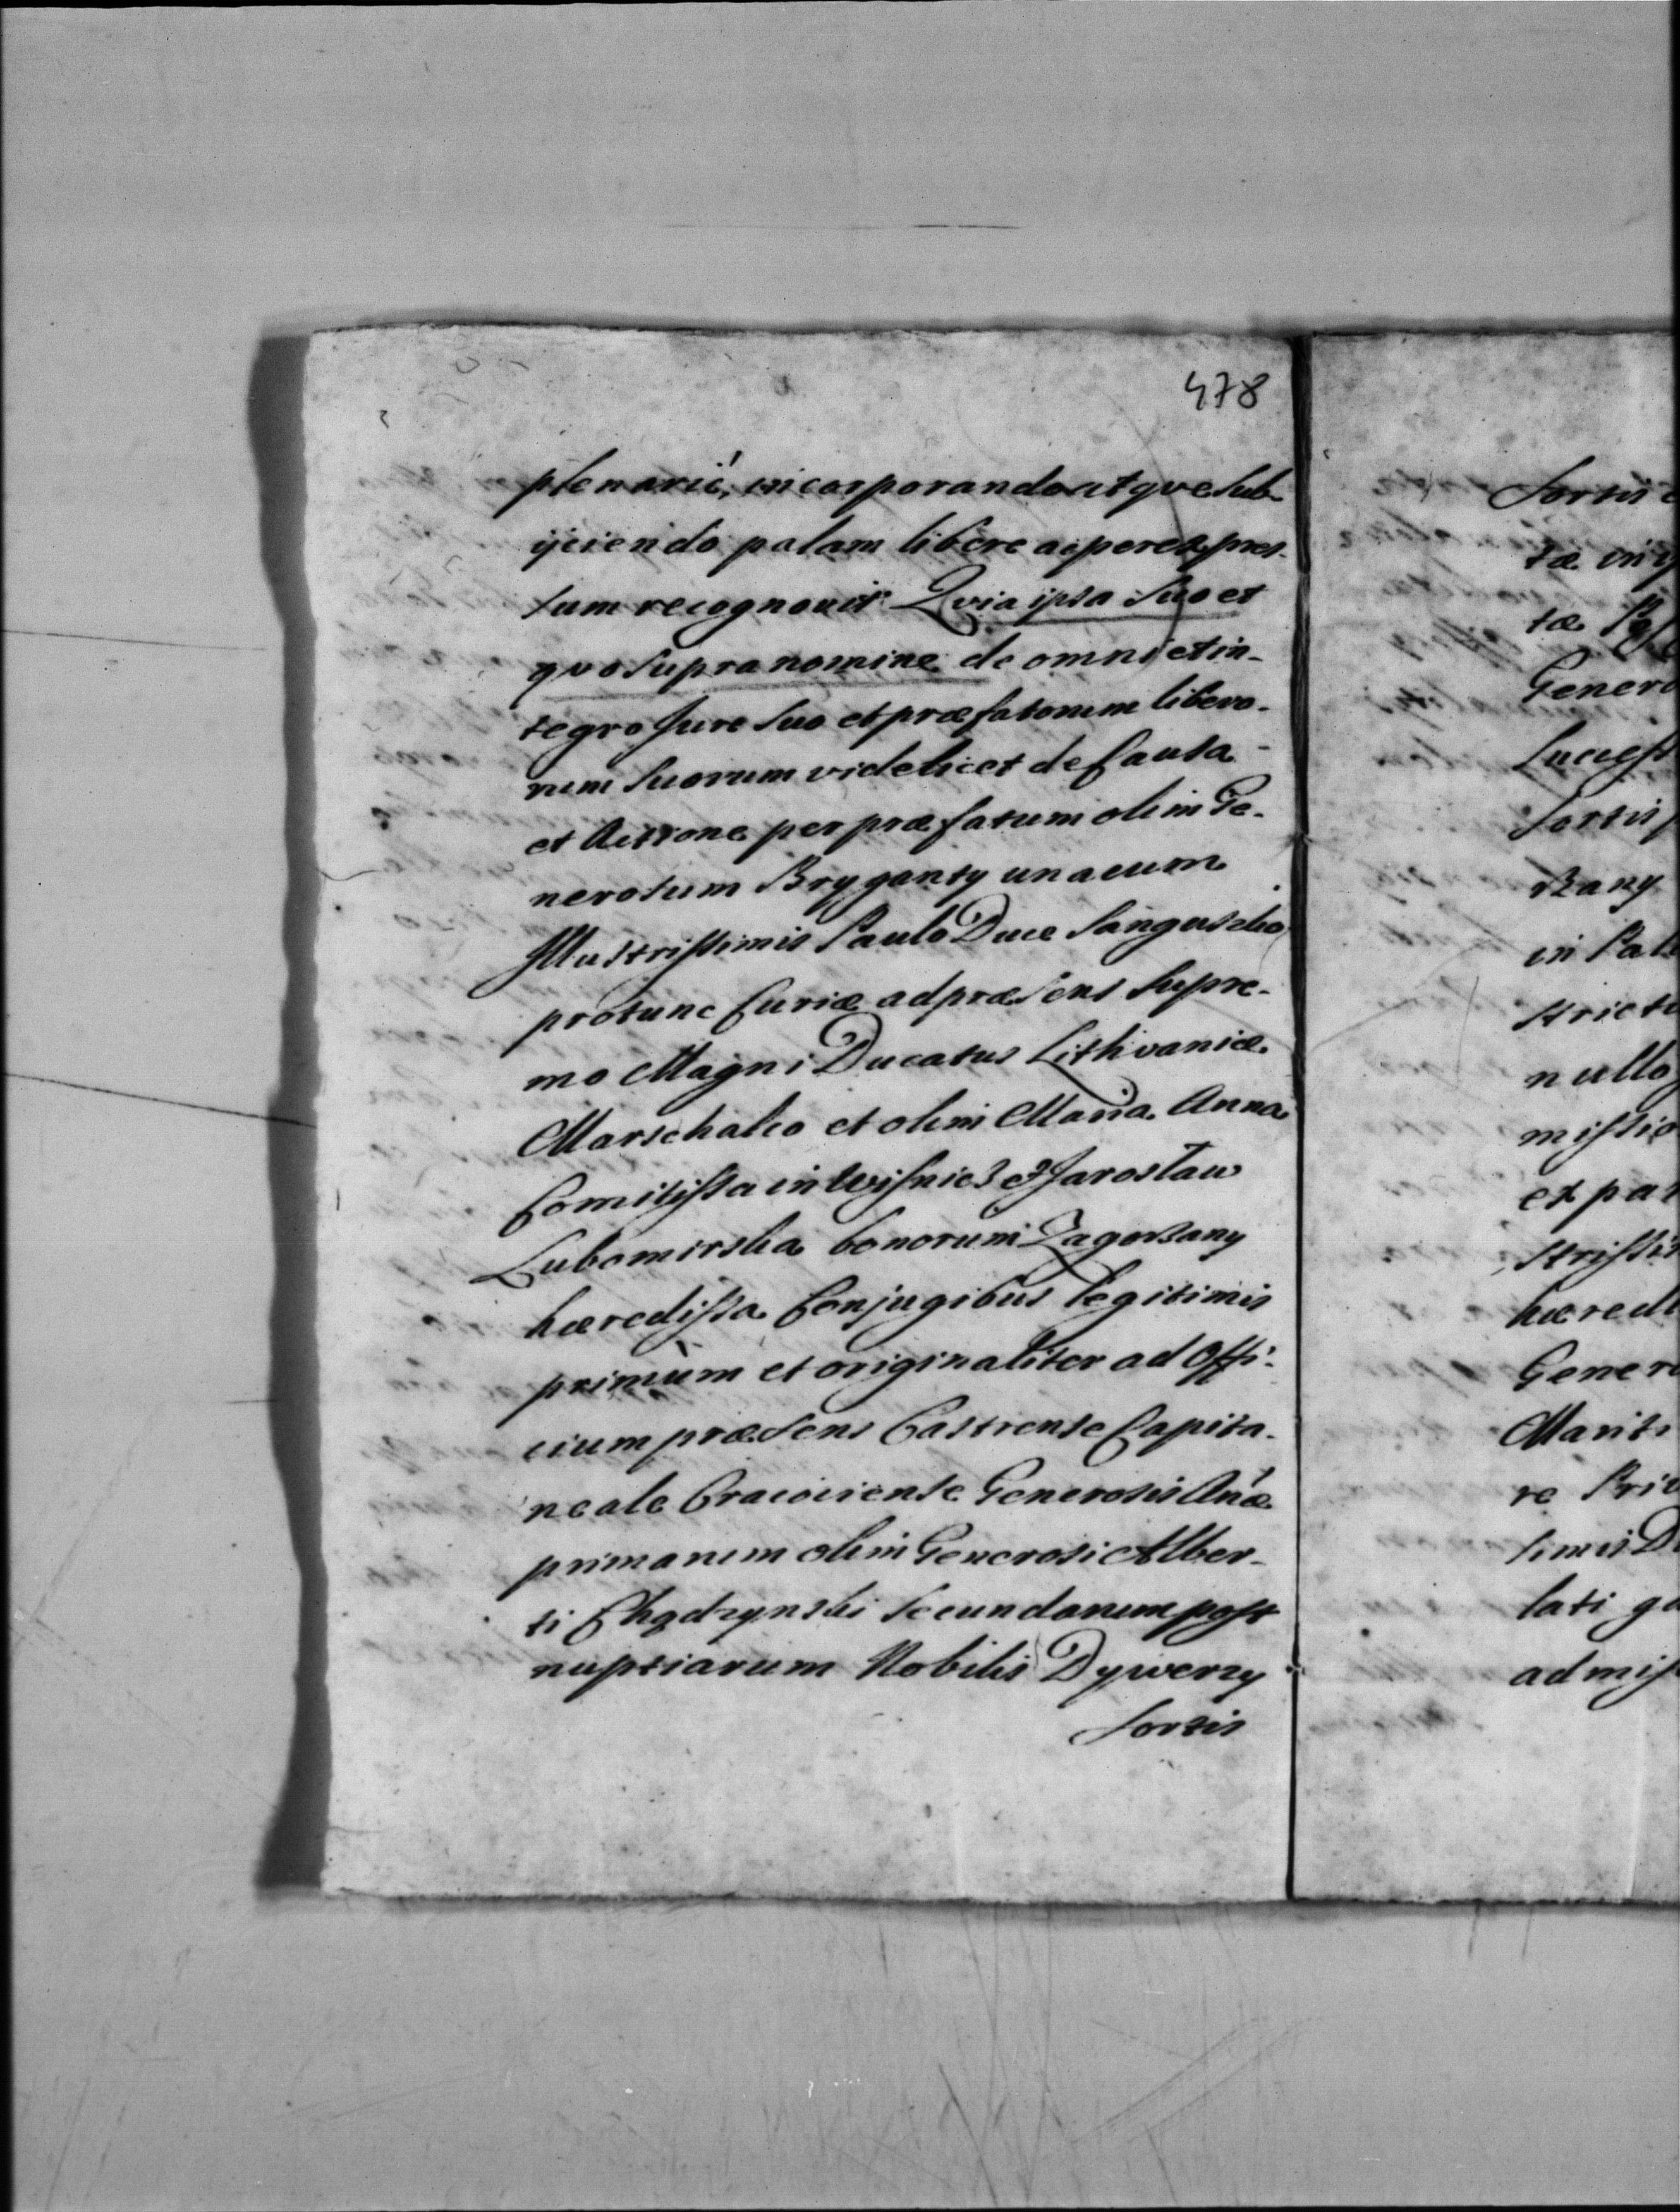 478
plenarié, incorporando atqve sub-
ijciendo palam libere ac per expres-
sum recognovit Qvia ipsa suo et
qvo supra nomine de omni et in-
tegro Jure suo et præfatorum libero-
rum suorum videlicet de Causa
et Actione per præfatum olim Ge-
nerosum Bryganty unacum
Illustrissimis Paulo Duce Sanguszko
protunc Curiæ ad præsens Supre-
mo Magni Ducatus Lithvaniæ
Marschalco et olim Maria Anna
Comitissa in Wisnicz & Jarosław
Lubomirska bonorum Zagorzany
hæredissa Conjugibus legitimis
primùm et originaliter ad Offi-
cium præsens Castrense Capita-
neale Cracoviense Generosis Annæ
primarum olim Generosi Alber-
ti Chądzynski secundarum post
nuptiarum Nobilis Dywerzy
Sortis
Sortis
tæ
tæ
Genero
Sortis
rzany
in Pal
nullo
missio
ex pa
hæredi
Genero
Mariti
re Pri
lati
admis